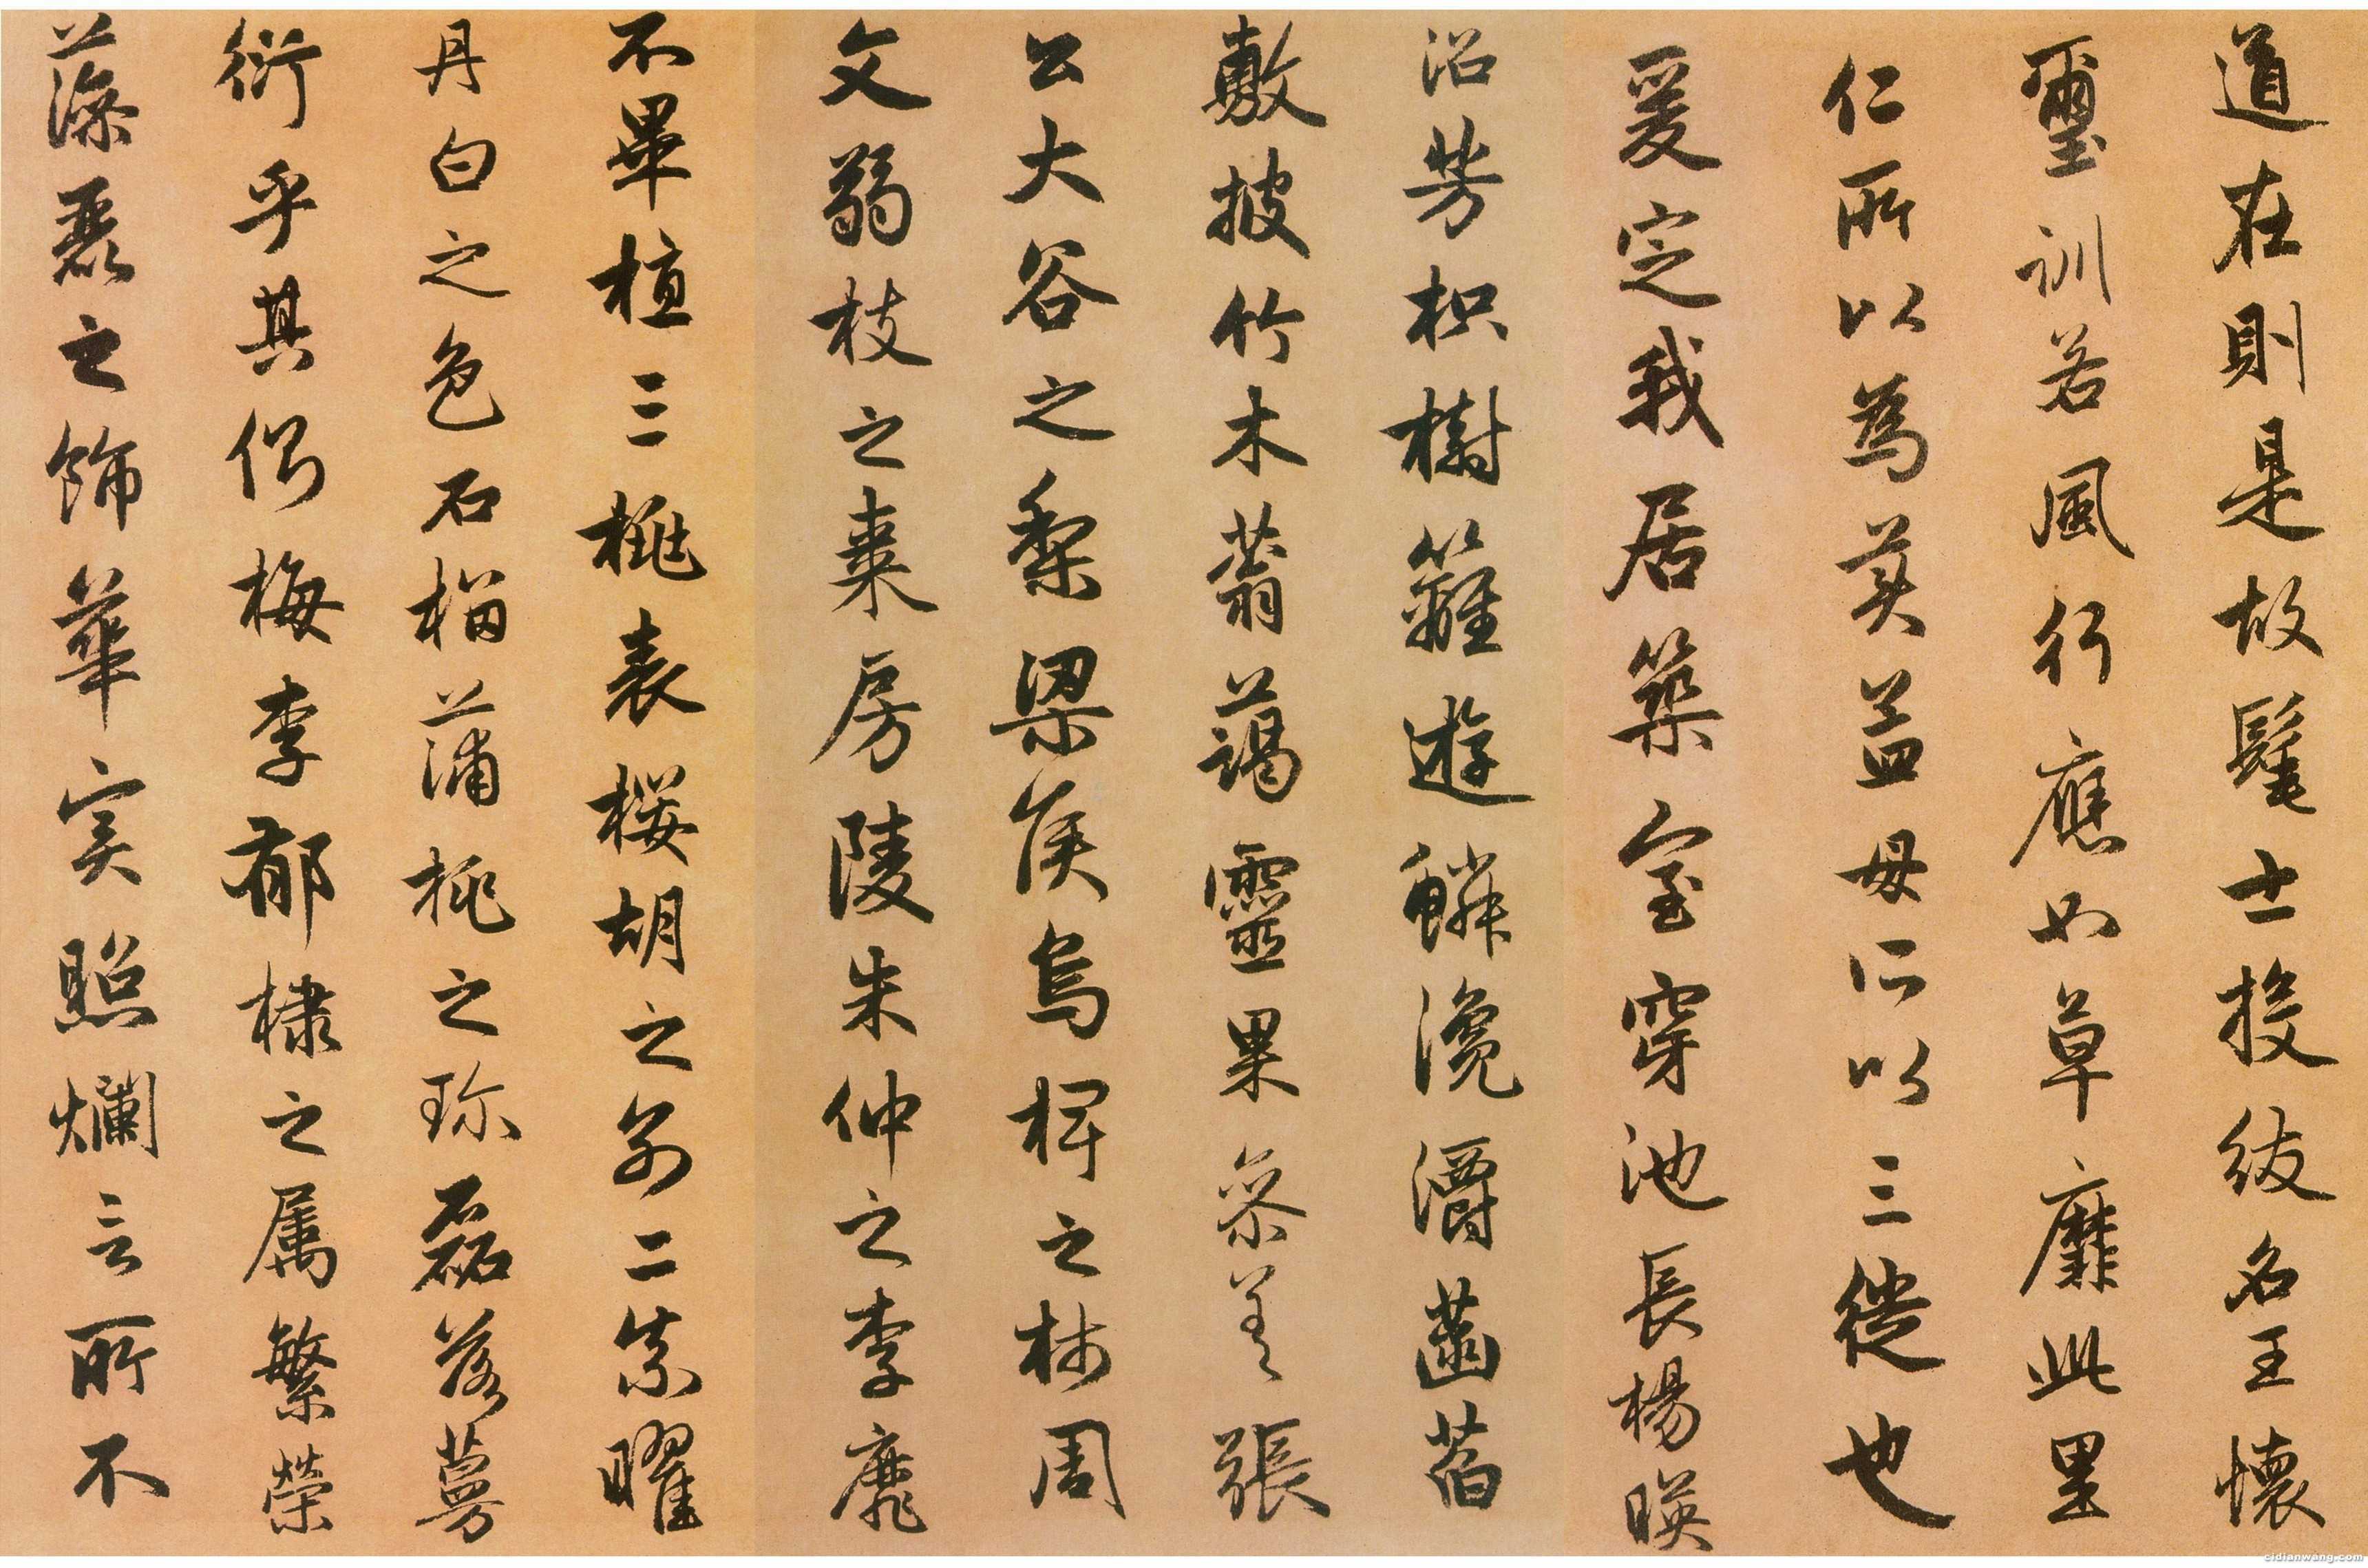 道在則是故髦士投紱名王懷
璽訓若風行應如草靡此里
仁所以為美孟母所以三徙也
爰定我居築室穿池長楊暎
沼芳枳樹籬遊鱗瀺灂菡萏
敷披竹木蓊藹靈果參差張
公大谷之梨梁侯烏椑之柹周
文弱枝之棗房陵朱仲之李靡
不畢植三桃表櫻胡之別二柰曜
丹白之色石榴蒲桃之珍磊落蔓
衍乎其側梅李郁棣之属繁榮
藻麗之飾華實照爛言所不
cidianwang.com